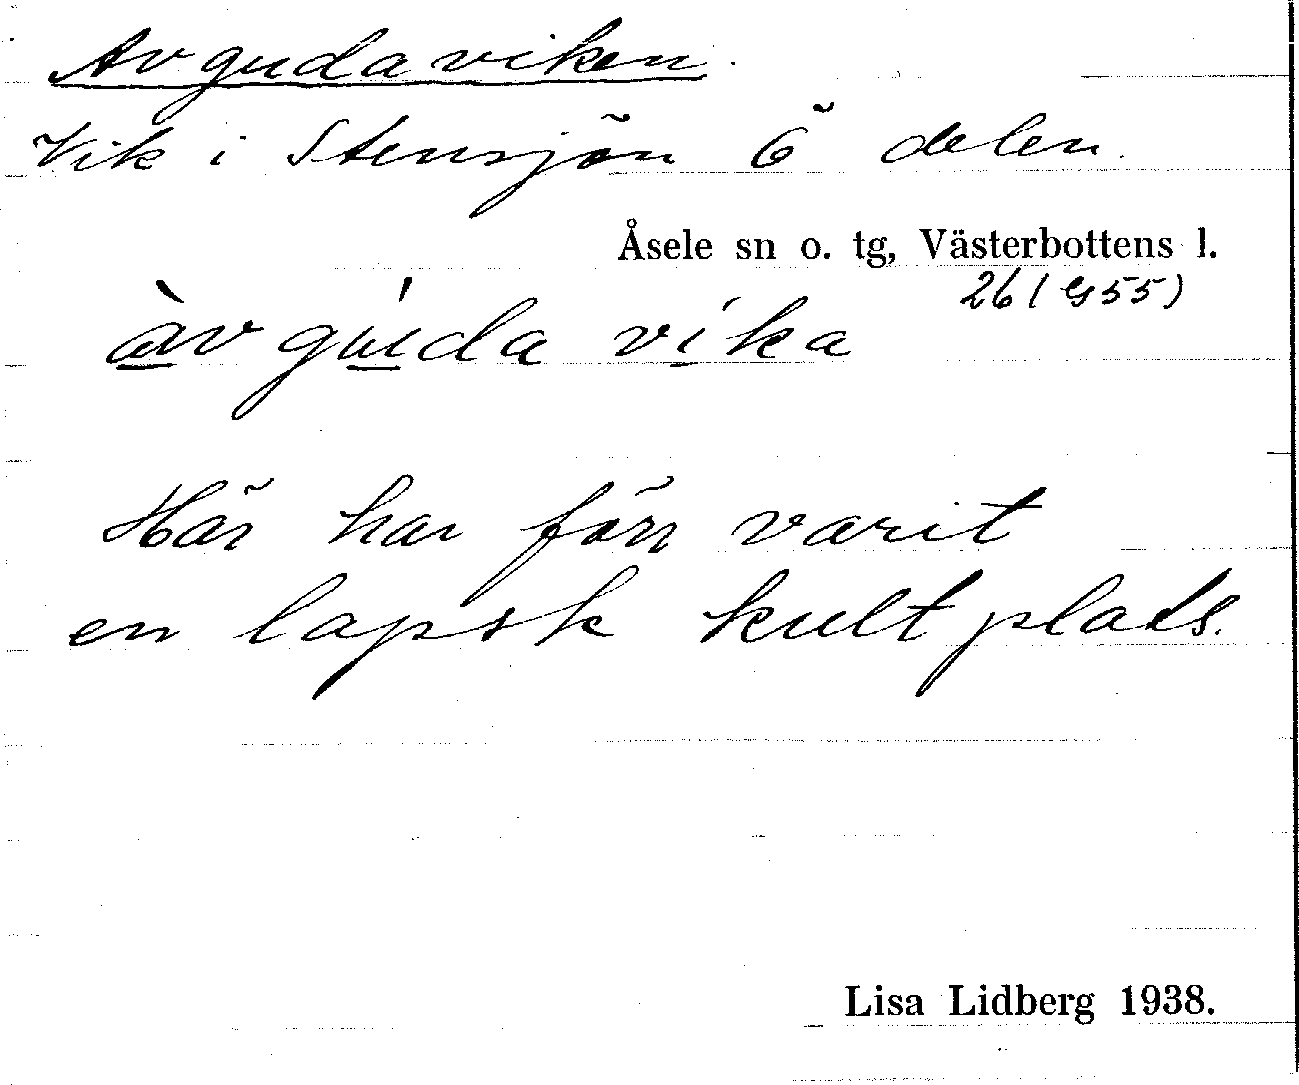 Avgudaviken.
Vik i Stensjön ö delen.
Åsele sn o. tg, Västerbottens l.
26 (G55)
àvgúda vika
Här har förr varit
en lapsk kultplats.
Lisa Lidberg 1938.